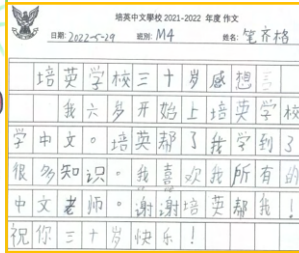 培英中文學校 2021-2022 年度 作文
日期: 2022-5-29 班別: M4 姓名: 笔齐格
培英学校三十岁感想
我六岁开始上培英学校
学中文。培英帮了我学到了
很多知识。我喜欢我所有的
中文老师。谢谢培英帮我!
祝你三十岁快乐!